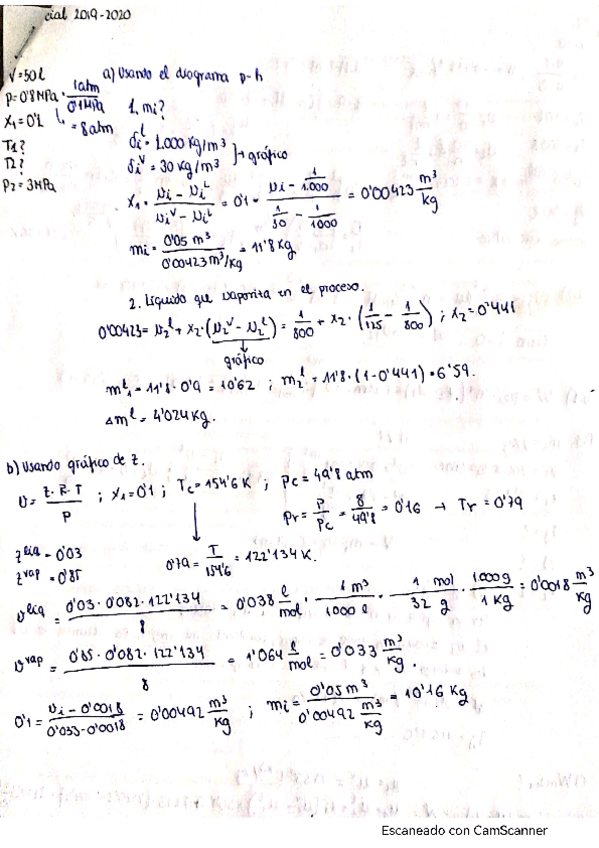 cial 2019-2020
V=50l
a) Usando el diagrama p-h
P=0'8MPa · 1atm/0'1MPa = 8atm
1. mi?
x₁=0'1
δiˡ = 1.000 kg/m³
δiᵛ = 30 kg/m³ ] → gráfico
T1?
T2?
P₂=3MPa
x₁ = (νi - νiᴸ)/(νiᵛ - νiᴸ) = 0'1 = (νi - 1/1.000)/(1/30 - 1/1000) = 0'00423 m³/kg
mi = 0'05 m³/0'00423 m³/kg = 11'8 kg
2. Líquido que vaporiza en el proceso.
0'00423 = ν₂ˡ + x₂·(ν₂ᵛ - ν₂ˡ) = 1/800 + x₂·(1/125 - 1/800) ; x₂=0'441
gráfico
mˡ₁ = 11'8·0'9 = 10'62 ; m₂ˡ = 11'8·(1-0'441) = 6'59.
Δmˡ = 4'024 kg.
b) Usando gráfico de z.
ν = z·R·T/P ; x₁=0'1 ; Tc=154'6 K ; Pc = 49'8 atm
Pr = P/Pc = 8/49'8 = 0'16 → Tr = 0'79
z liq = 0'03
z vap = 0'85
0'79 = T/154'6 = 122'134 K.
ν liq = 0'03·0'082·122'134/8 = 0'038 l/mol · 1 m³/1000 l · 1 mol/32 g · 1000g/1 kg = 0'0018 m³/kg
ν vap = 0'85·0'082·122'134/8 = 1'064 l/mol = 0'033 m³/kg.
0'1 = (νi - 0'0018)/(0'033-0'0018) = 0'00492 m³/kg ; mi = 0'05 m³/0'00492 m³/kg = 10'16 kg
Escaneado con CamScanner